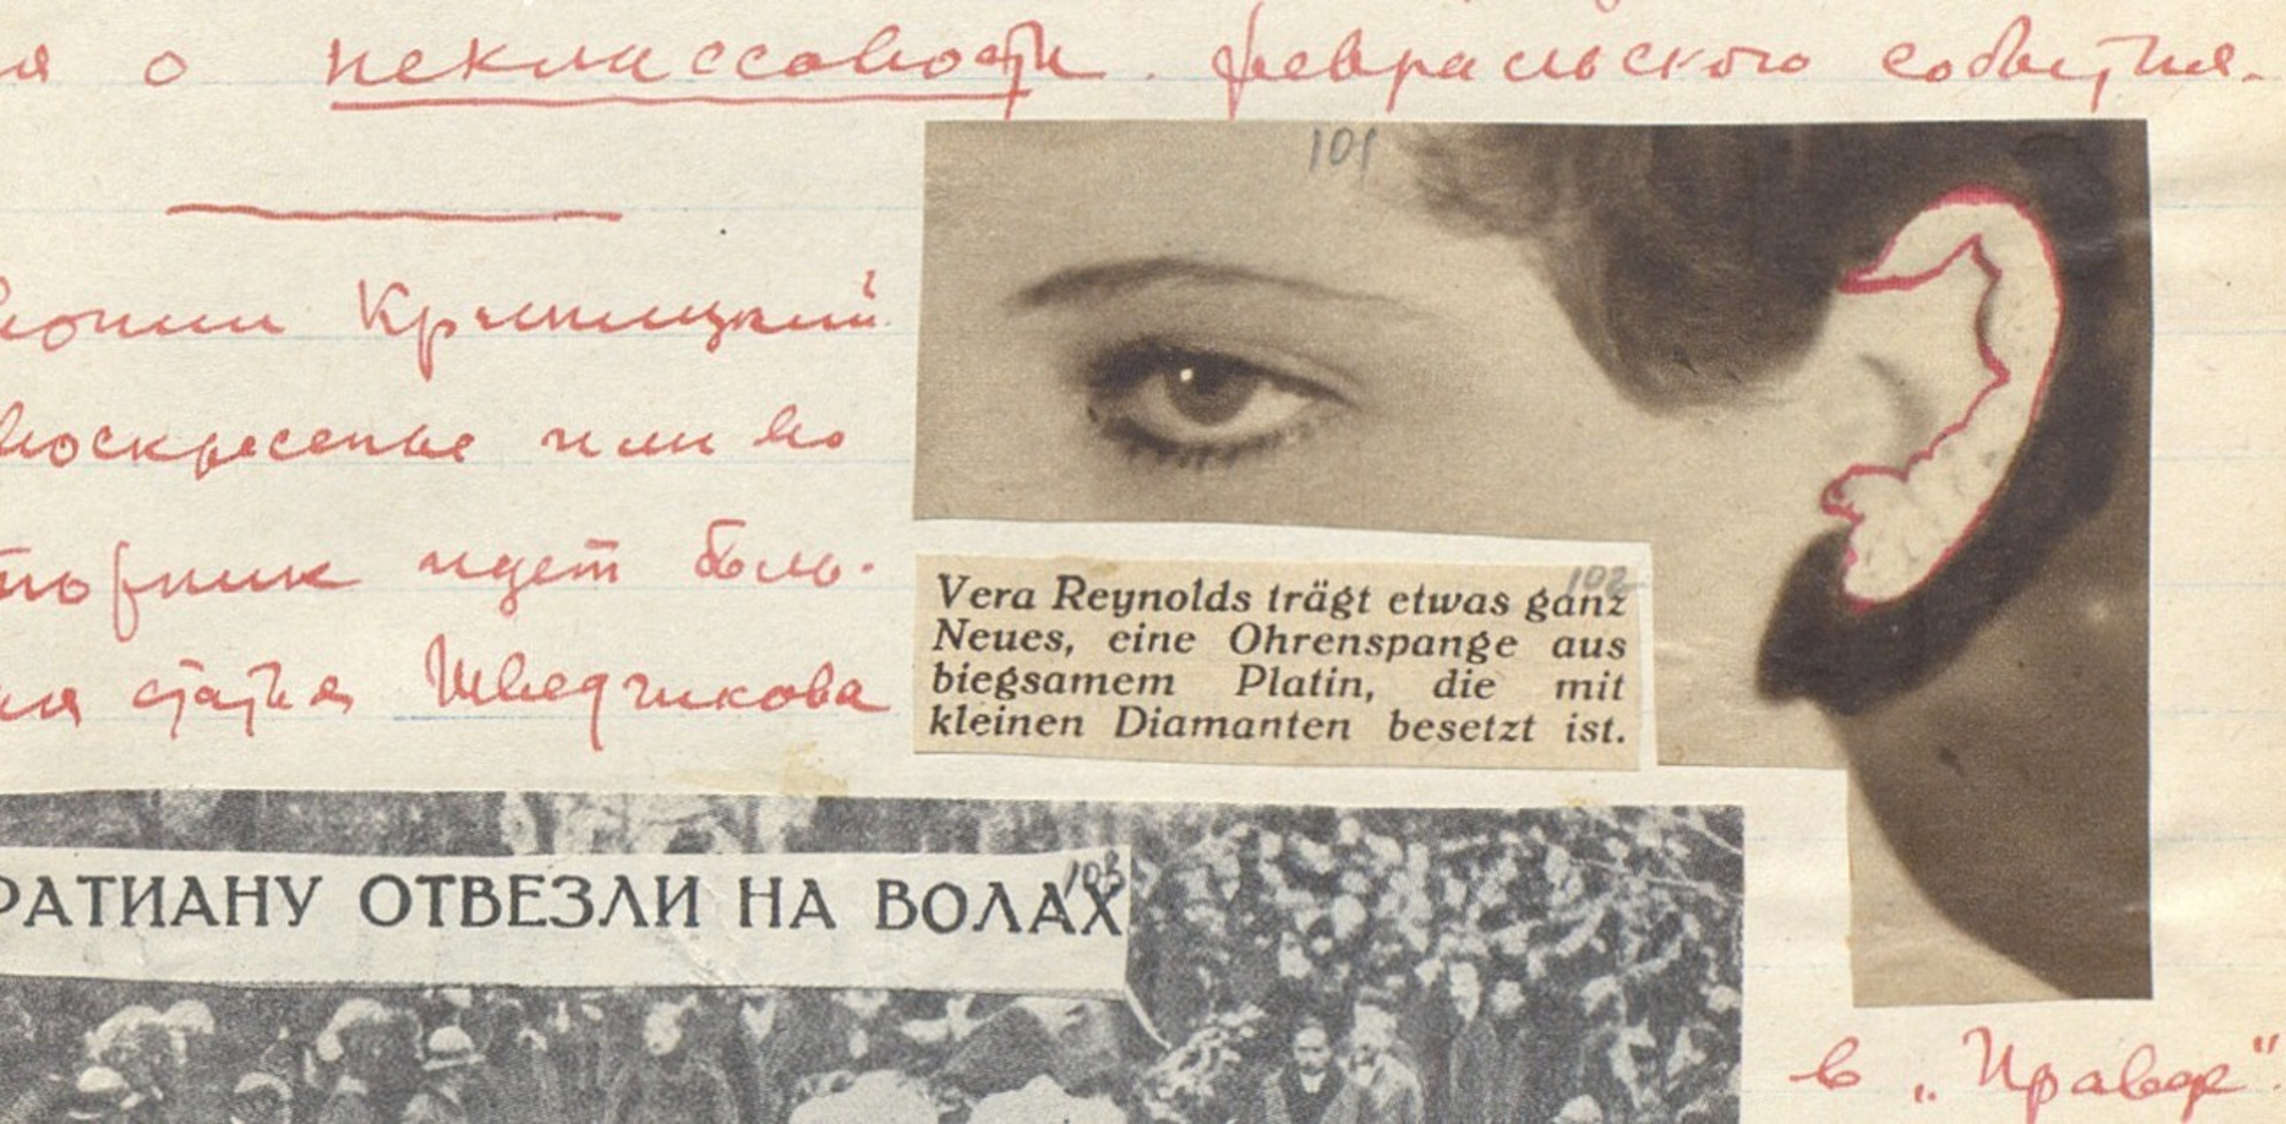 я о неклассовости февральского события.
101
Крыницкий
воскресенье или во
торник идет боль-
ая статья Шведчикова
102
Vera Reynolds trägt etwas ganz
Neues, eine Ohrenspange aus
biegsamem Platin, die mit
kleinen Diamanten besetzt ist.
103
РАТИАНУ ОТВЕЗЛИ НА ВОЛАХ
в „Правде“.